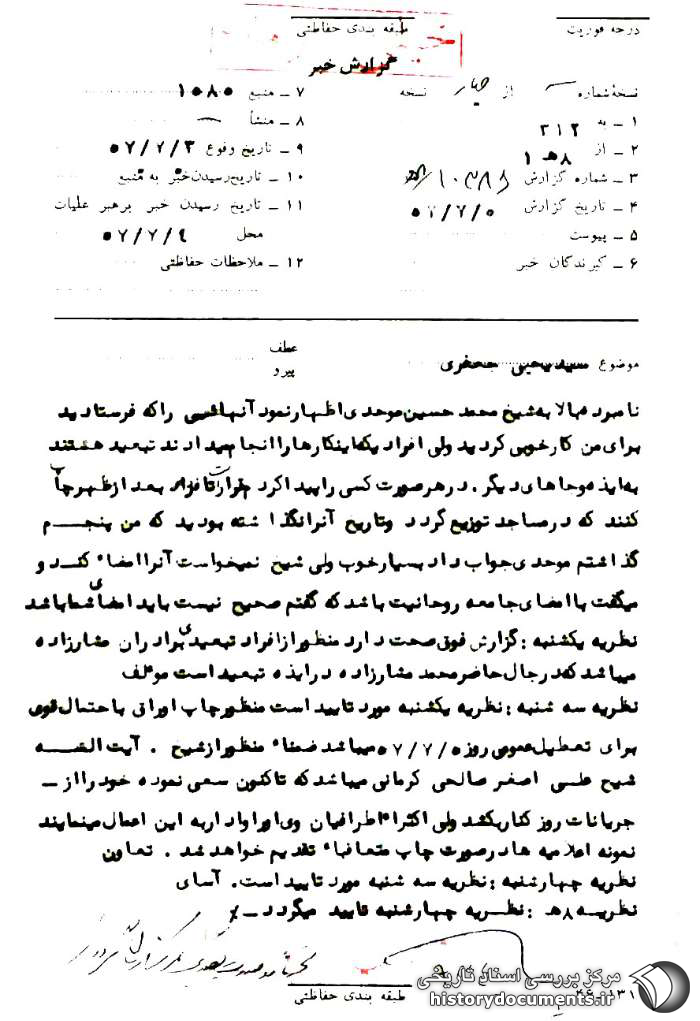 درجه فوریت
طبقه بندی حفاظتی
گزارش خبر
نسخهٔ شماره از چهار نسخه
۱ ـ به ۳۱۲
۲ ـ از ۸ هـ ۱
۳ ـ شماره گزارش
۴ ـ تاریخ گزارش ۵۷/۷/۵
۵ ـ پیوست
۶ ـ گیرندگان خبر
۷ ـ منبع ۱۰۸۵
۸ ـ منشأ
۹ ـ تاریخ وقوع ۵۷/۷/۳
۱۰ ـ تاریخ رسیدن خبر به منبع
۱۱ ـ تاریخ رسیدن خبر برهبر عملیات
محل ۵۷/۷/۴
۱۲ ـ ملاحظات حفاظتی
موضوع سیدیحیی جعفری
عطف
پیرو
نامبرده بالا به شیخ محمد حسین موحدی اظهار نمود آنهائسی را که فرستادید
برای من کار خوبی کردید ولی افرادیکه اینکارها را انجام میدادند تبعید هستند
به ایذه و جاهای دیگر. در هر صورت کسی را پیدا کرد قرار است تا فردا بعد از ظهر چاپ
کنند که در مساجد توزیع گردد و تاریخ آنرا نگذاشته بودید که من پنجم
گذاشتم موحدی جواب داد بسیار خوب ولی شیخ نمیخواست آنرا امضاء کند و
میگفت با امضای جامعه روحانیت باشد که گفتم صحیح نیست باید امضای شما باشد
نظریه یکشنبه : گزارش فوق صحت دارد منظور از افراد تبعیدی برادران مشارزاده
میباشد که در حال حاضر محمد مشارزاده در ایذه تبعید است موءلف
نظریه سه شنبه : نظریه یکشنبه مورد تایید است منظور چاپ اوراقی با احتمال قوی
برای تعطیل عمومی روز ۵۷/۷/۵ میباشد ضمناً منظور از شیخ . آیت الله
شیخ علی اصغر صالحی کرمانی میباشد که تاکنون سعی نموده خود را از ـ
جریانات روز کنار بکشد ولی اکثراً اطرافیان وی او را وادار به این اعمال مینمایند
نمونه اعلامیه ها در صورت چاپ متعاقباً تقدیم خواهد شد . تعاون
نظریه چهارشنبه : نظریه سه شنبه مورد تایید است. آسای
نظریه ۸ هـ : نظریه چهارشنبه تایید میگردد ـ
طبقه بندی حفاظتی
مرکز بررسی اسناد تاریخی
historydocuments.ir